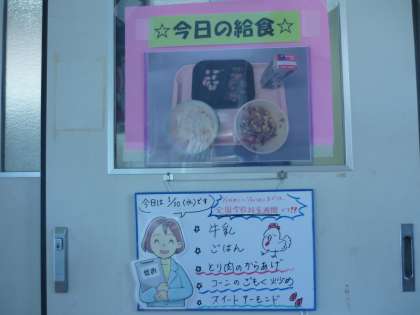 ☆今日の給食☆
今日は 1/20 (水)です
全国学校給食週間
牛乳
ごはん
とり肉のからあげ
コーンのごもく炒め
スイートアーモンド